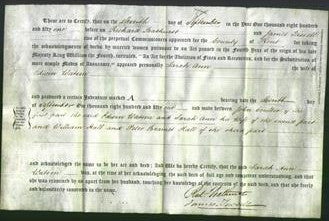 These are to Certify, that on the seventh day of September in the Year One thousand eight hundred
and fifty one before Richard and James
two of the perpetual Commissioners appointed for the County of Kent for
taking the acknowledgments of deeds by married women pursuant to an Act passed in the Fourth Year of the reign of his late
Majesty King William the Fourth, intituled, "An Act for the Abolition of Fines and Recoveries, and for the Substitution of
more simple Modes of Assurance," appeared personally Sarah Ann
Edwin
and produced a certain Indenture marked A bearing date the
of September One thousand eight hundred and fifty one and made between John of the
first part the said Edwin and Sarah Ann his wife of the second part
and William Hall and Peter Hall of the third part
and acknowledged the same to be her act and deed: And We do hereby Certify, that the said Sarah Ann
was, at the time of her acknowledging the said deed, of full age and competent understanding, and that
she was examined by us apart from her husband, touching her knowledge of the contents of the said deed, and that she freely
and voluntarily consented to the same.
James